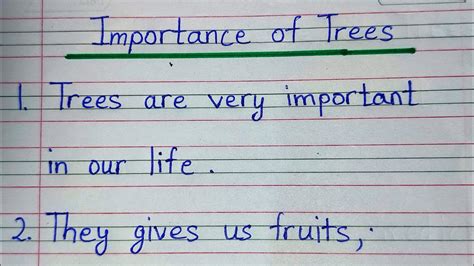 Importance of Trees
1. Trees are very important
in our life.
2. They gives us fruits,